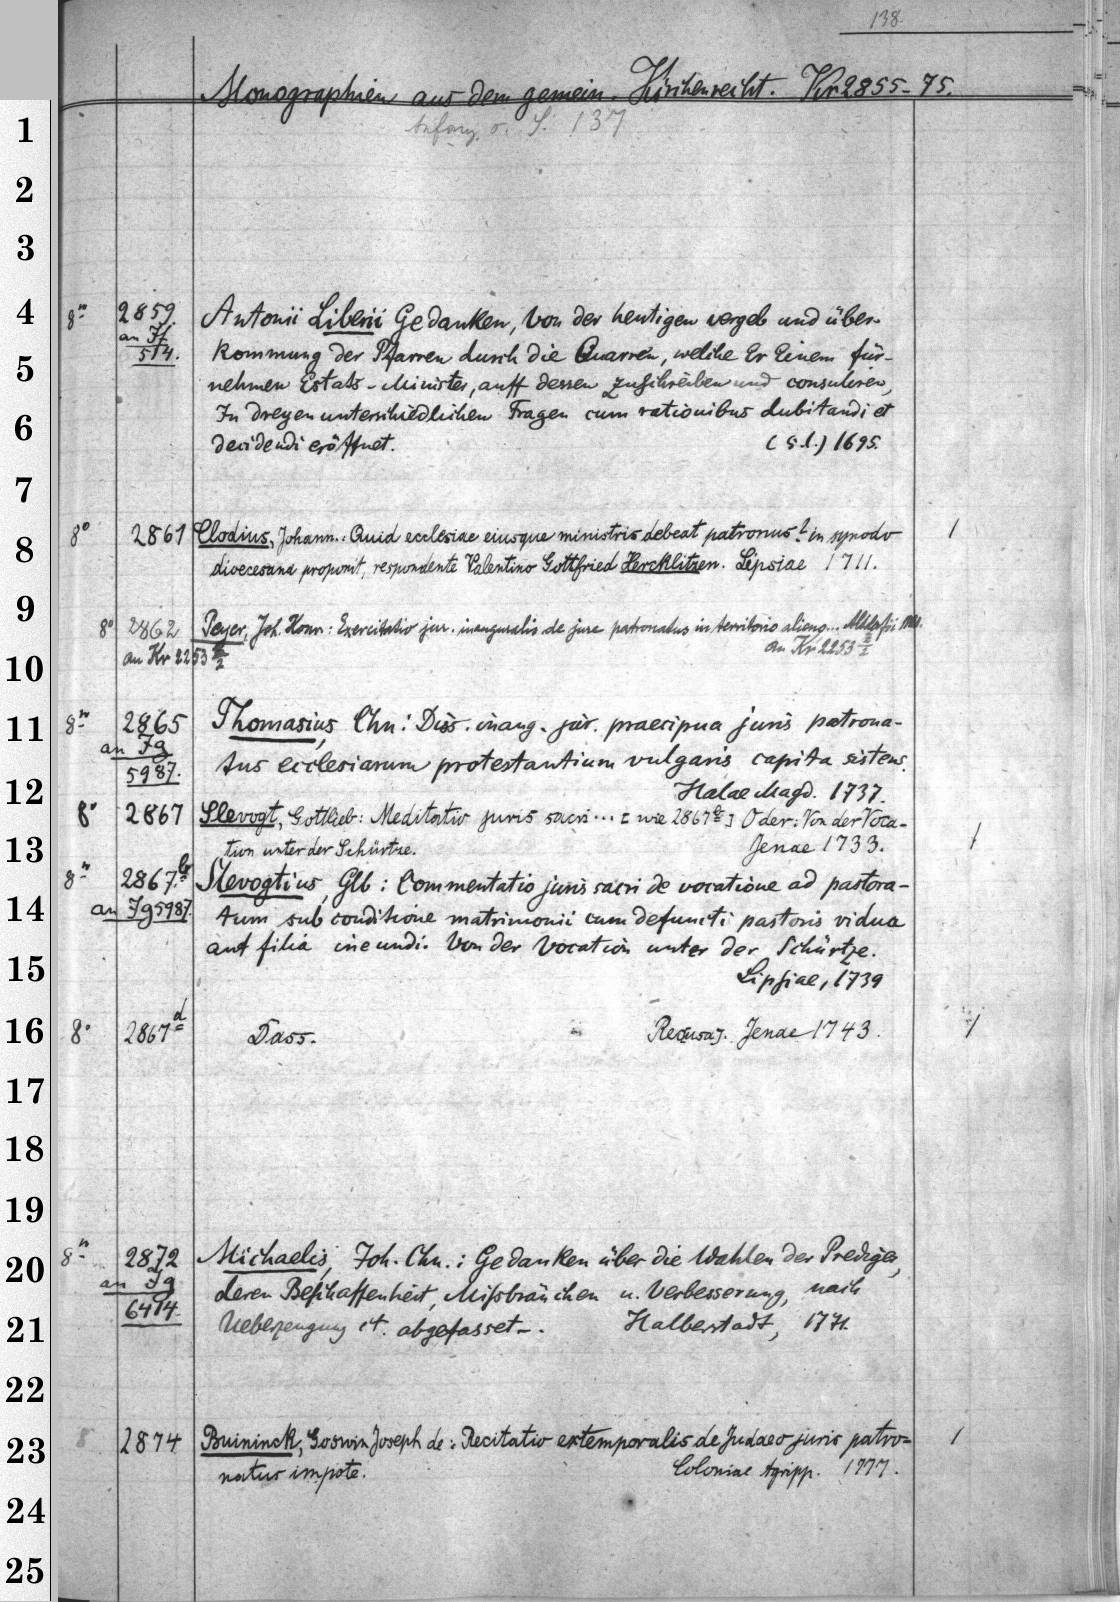 138
Monographien aus dem gemein. Kirchenrecht. Kr 2855-75.
Anfang s. S. 137
1
2
3
4 8n 2859 Antonii Liberii Gedanken, Von der heutigen vergeb und über-
an Jf 514. kommung der Pfarren durch die Quarren, welche Er Einem für-
5 nehmen Estats-Minister, auff dessen zuschreiben und consuliren,
6 In dreyen unterschiedlichen Fragen cum rationibus dubitandi et
decidendi eröffnet. (s.l.) 1695.
7
8 8° 2861 Clodius, Johann.: Quid ecclesiae eiusque ministris debeat patronus? in synodo 1
dioecesana proponit, respondente Valentino Gottfried Hercklitzen. Lipsiae 1711.
9 8° 2862 Peyer, Joh. Konr: Exercitatio jur. inauguralis de jure patronatus in territorio alieno...
10 an Kr 2253 an Kr 2253
11 8n 2865 Thomasius, Chn: Diss. inaug. jur. praecipua juris patrona-
an Jg 5987. tus ecclesiarum protestantium vulgaris capita sistens.
12 Halae Magd. 1737.
8° 2867 Slevogt, Gottlieb: Meditatio juris sacri... [wie 2867b] Oder: Von der Voca- 1
13 tion unter der Schürtze. Jenae 1733.
8n 2867b Slevogtius, Glb: Commentatio juris sacri de vocatione ad pastora-
14 an Jg 5987. tum sub conditione matrimonii cum defuncti pastoris vidua
aut filia ineundi. Von der Vocation unter der Schürtze.
15 Lipsiae, 1739
16 8° 2867d Dass. Recusa]. Jenae 1743. 1
17
18
19
20 8n 2872 Michaelis, Joh. Chn.: Gedanken über die Wahlen der Prediger,
an Jg 6414. deren Beschaffenheit, Missbräuchen u. Verbesserung, nach
21 Ueberzeugung abgefasset-. Halberstadt, 1771.
22
23 8 2874 Buininck, Goswin Joseph de: Recitatio extemporalis de Judaeo juris patro- 1
natus impote. Coloniae Agripp. 1777.
24
25